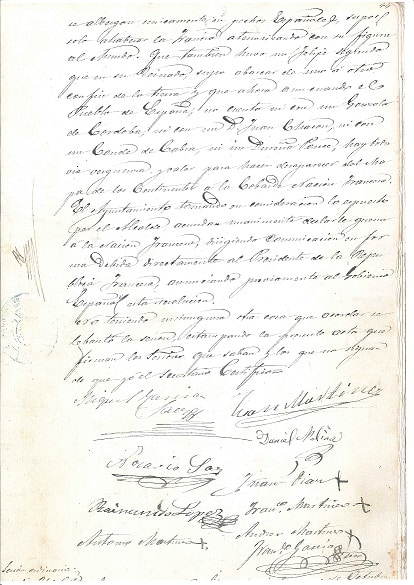 se albergan unicamente, en pechos Españoles, supo el
solo anabaser la Francia atemorizando con su figura
al Mundo. Que tambien hubo un Felipe segundo
que en su Reinado, supo abarcar de uno a otro
confin de la tierra y que ahora aun cuando el
Pueblo de España, no cuenta ni con un Gonzalo
de Córdoba, ni con un D. Juan Chacon, ni con
un Conde de Cabra, ni un Ponce, hay toda
via verguenza y valor para hacer desaparecer del Ma
pa de los Continentes a la Cobarde Nacion Francesa.
El Ayuntamiento tomando en consideracion lo espuesto
por el Alcalde acuerdan unanimemente declarar la guerra
a la Nacion Francesa, dirigiendo Comunicacion en for
ma debida directamente al Presidente de la Repu
blica Francesa, anunciando previamente al Gobierno
Español esta resolucion.
Y no teniendo ninguna otra cosa que acordar se
lebanto la sesion, estampando la presente acta que
firman los Señores que saben y los que no signan
de que yo el Secretario Certifico=
Miguel Garcia
Saez
Juan Martinez
Daniel Molina
Juan Diaz +
Raimundo Lopez
Franco Martinez +
Antonio Martinez +
Andres Martinez +
Franco Garcia
Sesion ordinaria